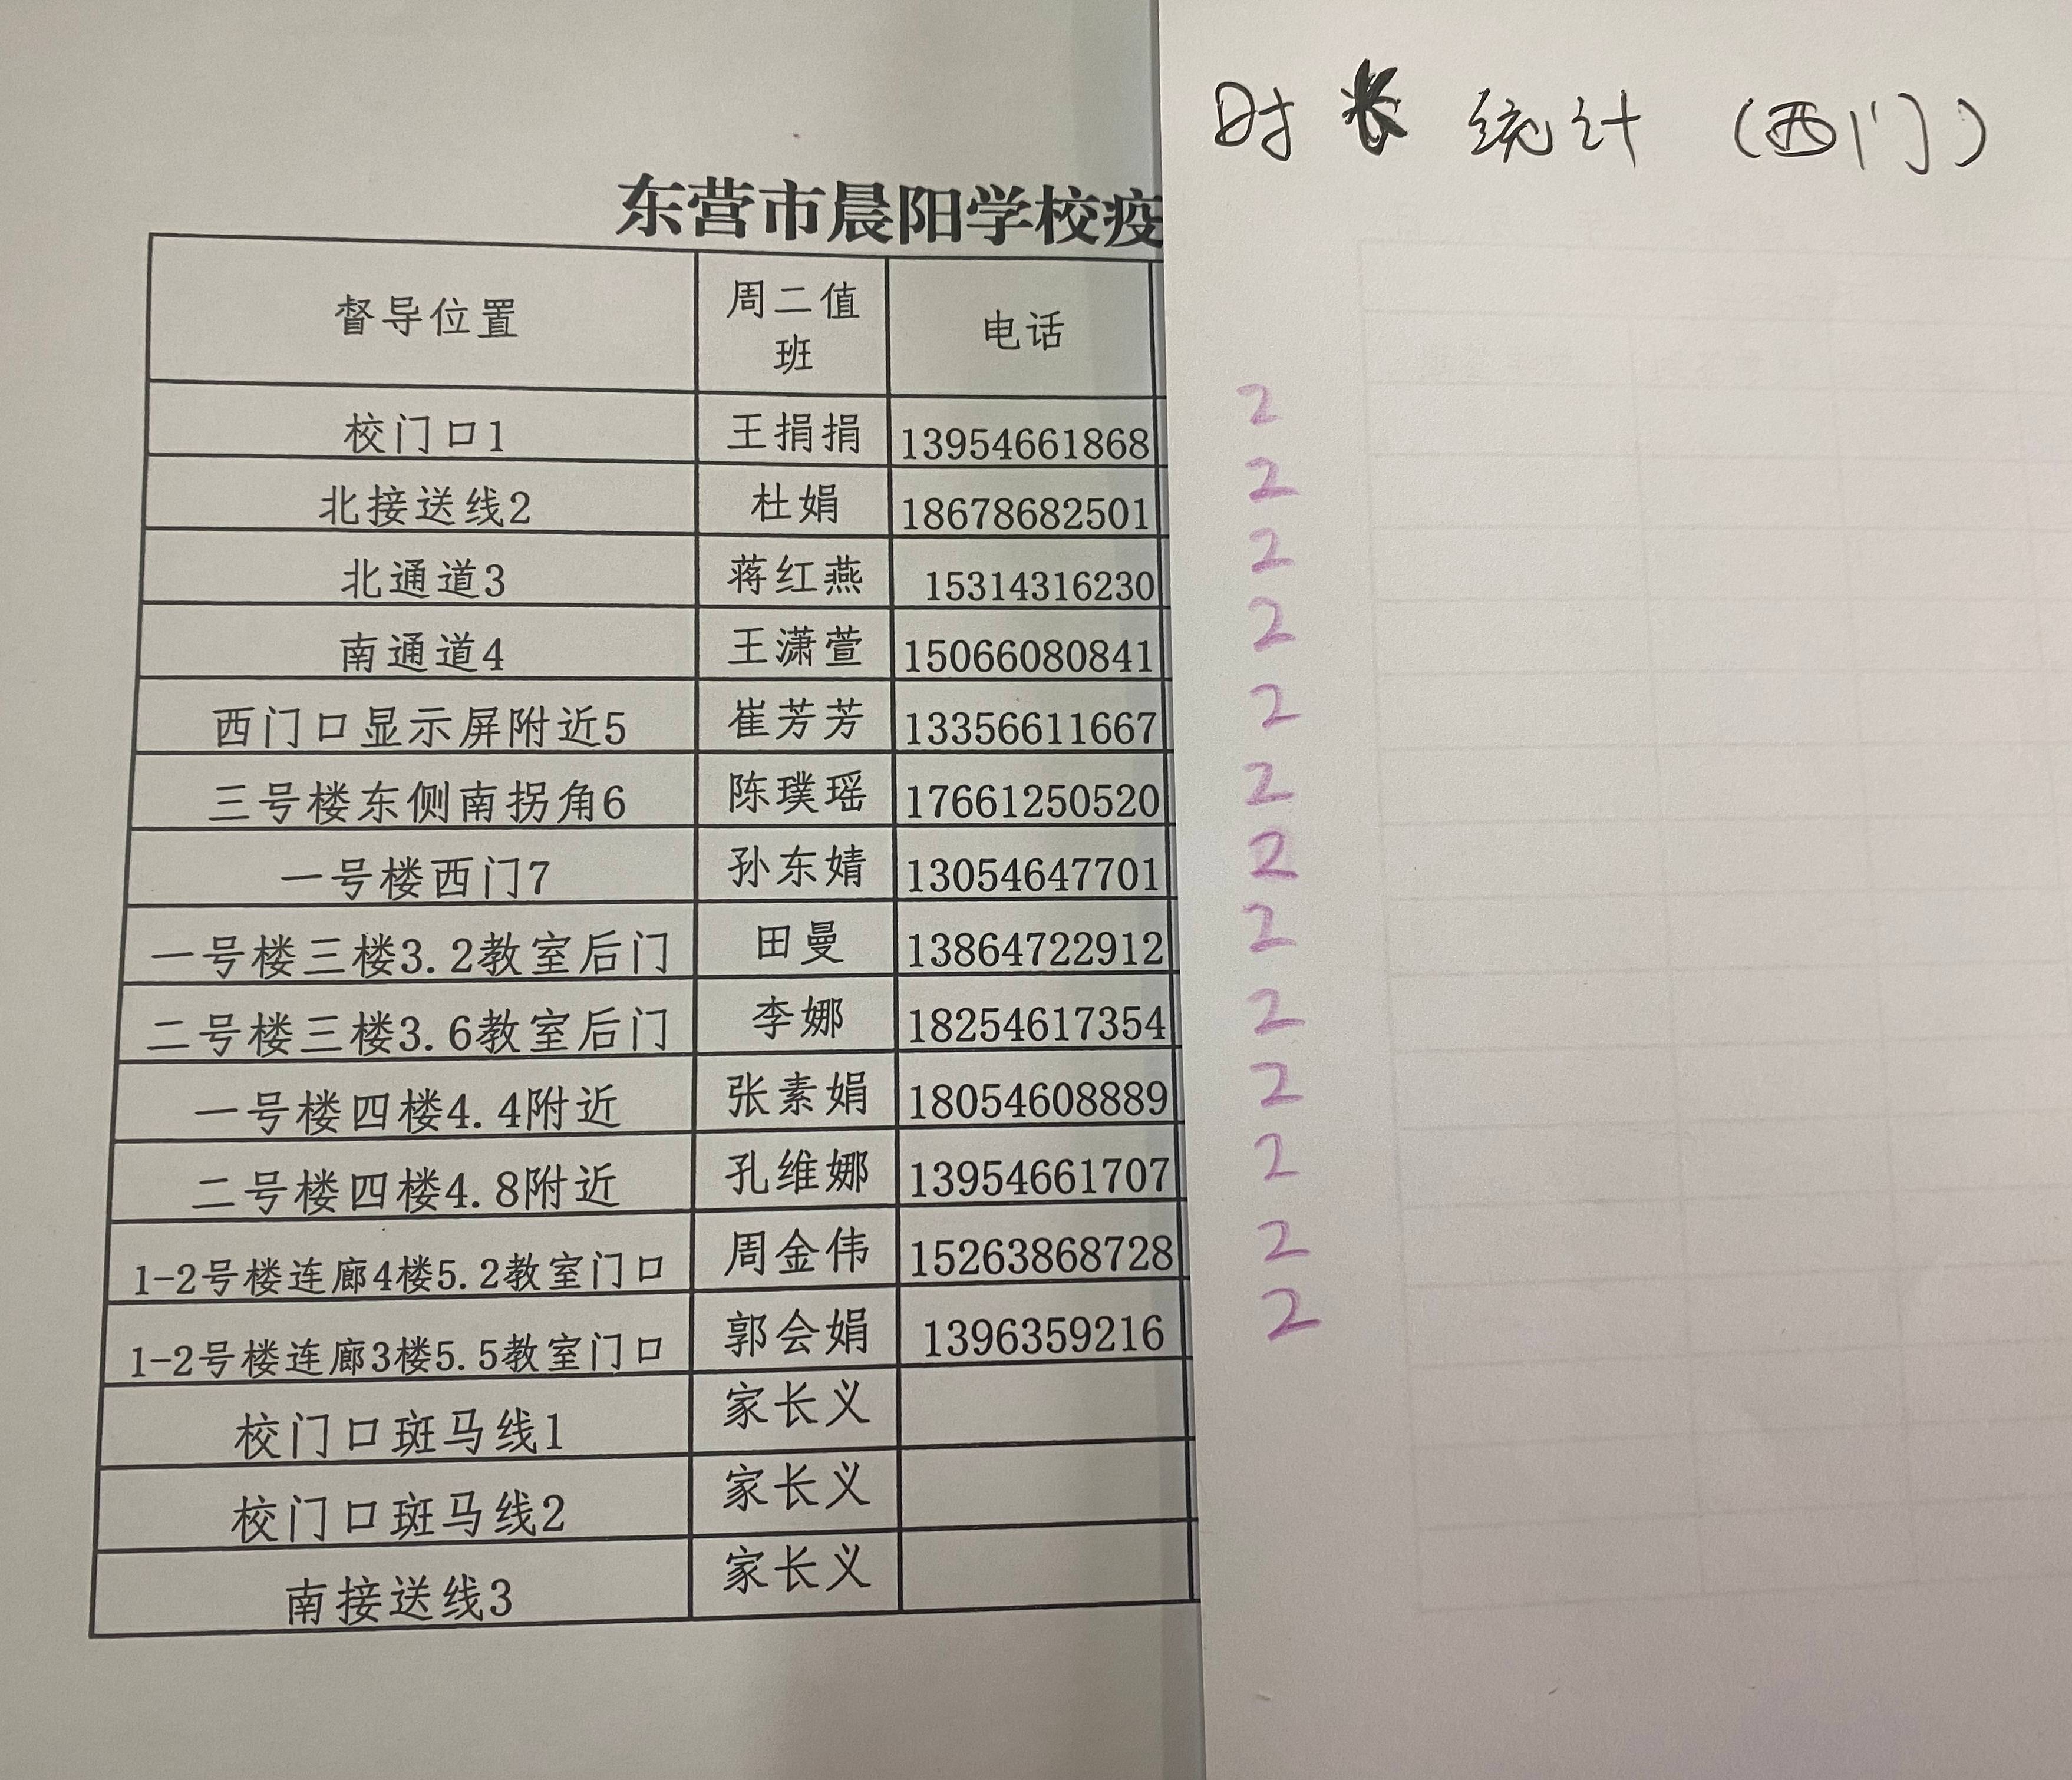 时长统计（西门）
东营市晨阳学校疫
督导位置 周二值班 电话
校门口1 王捐捐 13954661868 2
北接送线2 杜娟 18678682501 2
北通道3 蒋红燕 15314316230 2
南通道4 王潇萱 15066080841 2
西门口显示屏附近5 崔芳芳 13356611667 2
三号楼东侧南拐角6 陈璞瑶 17661250520 2
一号楼西门7 孙东婧 13054647701 2
一号楼三楼3.2教室后门 田曼 13864722912 2
二号楼三楼3.6教室后门 李娜 18254617354 2
一号楼四楼4.4附近 张素娟 18054608889 2
二号楼四楼4.8附近 孔维娜 13954661707 2
1-2号楼连廊4楼5.2教室门口 周金伟 15263868728 2
1-2号楼连廊3楼5.5教室门口 郭会娟 1396359216 2
校门口斑马线1 家长义
校门口斑马线2 家长义
南接送线3 家长义